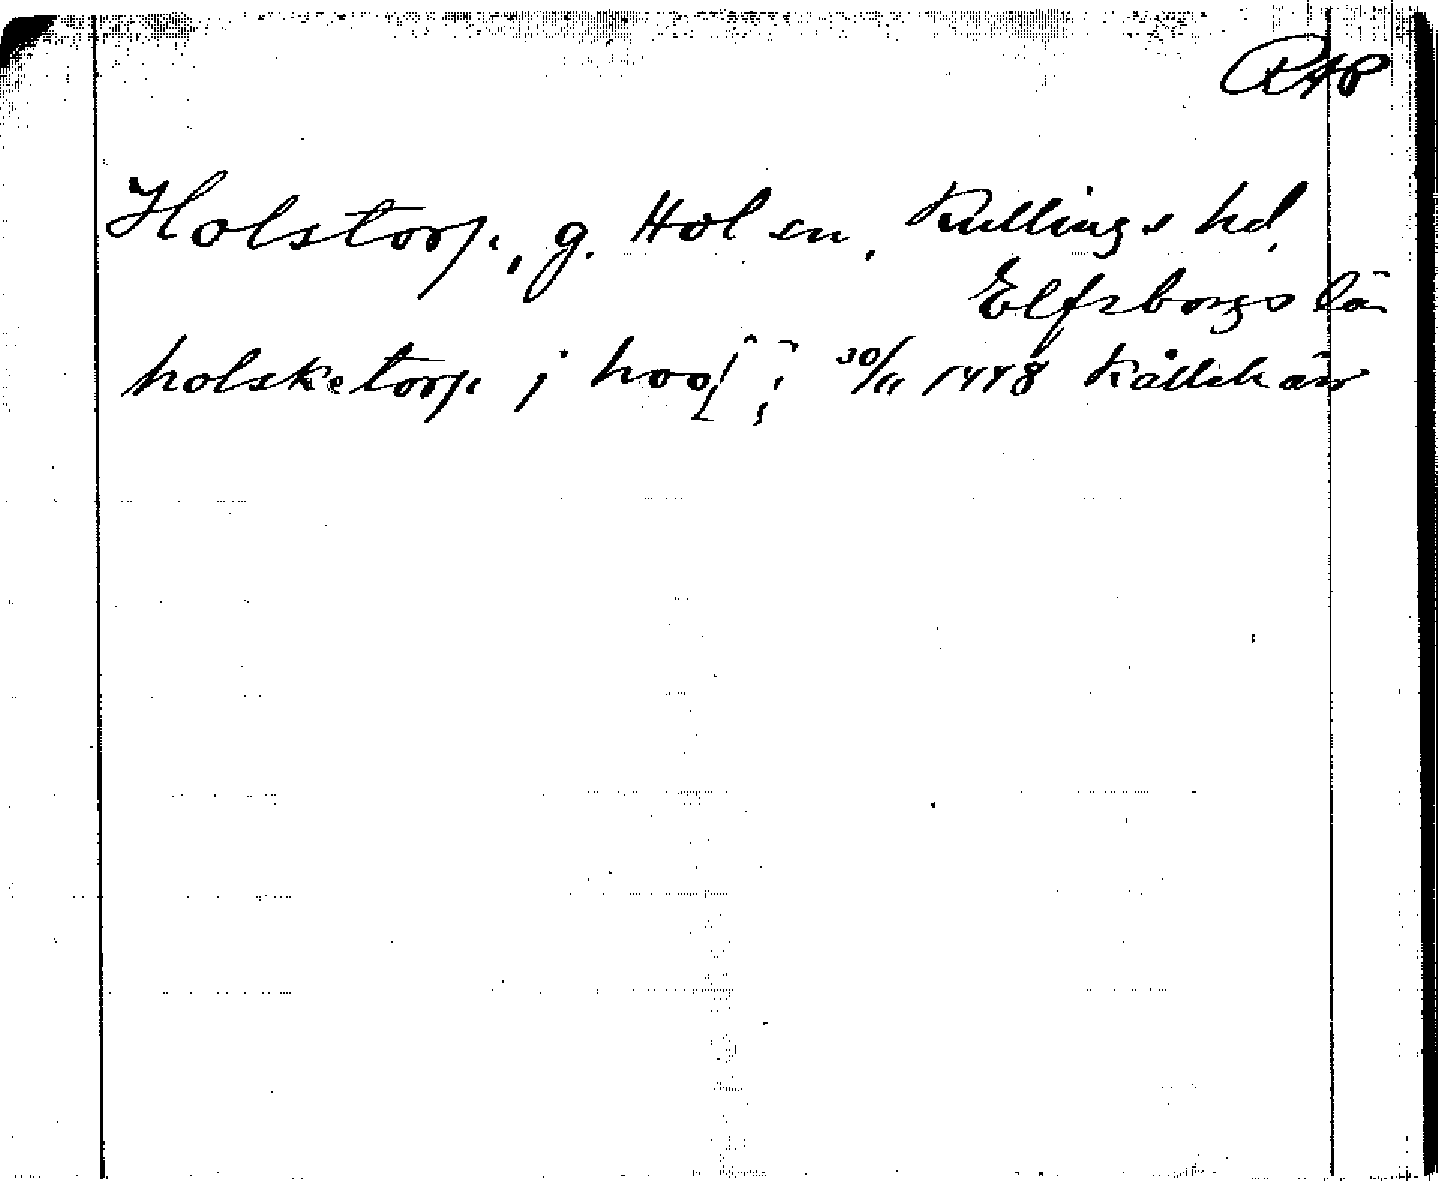 RAP
Holstorp, g. Hol sn, Kullings hd,
Elfsborgs län
holsketorp j hool 30/11 1448 Kållekärr